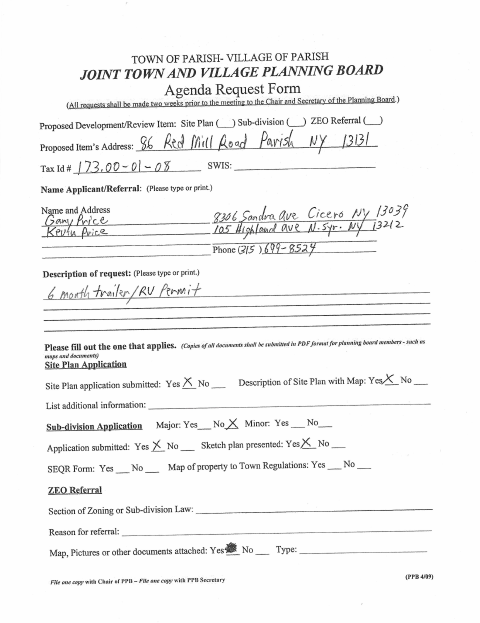 TOWN OF PARISH- VILLAGE OF PARISH
JOINT TOWN AND VILLAGE PLANNING BOARD
Agenda Request Form
(All requests shall be made two weeks prior to the meeting to the Chair and Secretary of the Planning Board.)
Proposed Development/Review Item: Site Plan (__) Sub-division (__) ZEO Referral (__)
Proposed Item's Address: 86 Red Mill Road Parish NY 13131
Tax Id # 173.00-01-08 SWIS:
Name Applicant/Referral: (Please type or print.)
Name and Address
Gary Price 8306 Sandra Ave Cicero NY 13039
Kevin Price 105 Highland Ave N. Syr. NY 13212
Phone (315) 699-8524
Description of request: (Please type or print.)
6 month trailer/RV Permit
Please fill out the one that applies. (Copies of all documents shall be submitted in PDF format for planning board members - such as
maps and documents)
Site Plan Application
Site Plan application submitted: Yes X No __ Description of Site Plan with Map: Yes X No __
List additional information:
Sub-division Application Major: Yes__ No X Minor: Yes __ No__
Application submitted: Yes X No __ Sketch plan presented: Yes X No __
SEQR Form: Yes __ No __ Map of property to Town Regulations: Yes __ No __
ZEO Referral
Section of Zoning or Sub-division Law:
Reason for referral:
Map, Pictures or other documents attached: Yes No __ Type:
File one copy with Chair of PPB – File one copy with PPB Secretary (PPB 4/09)